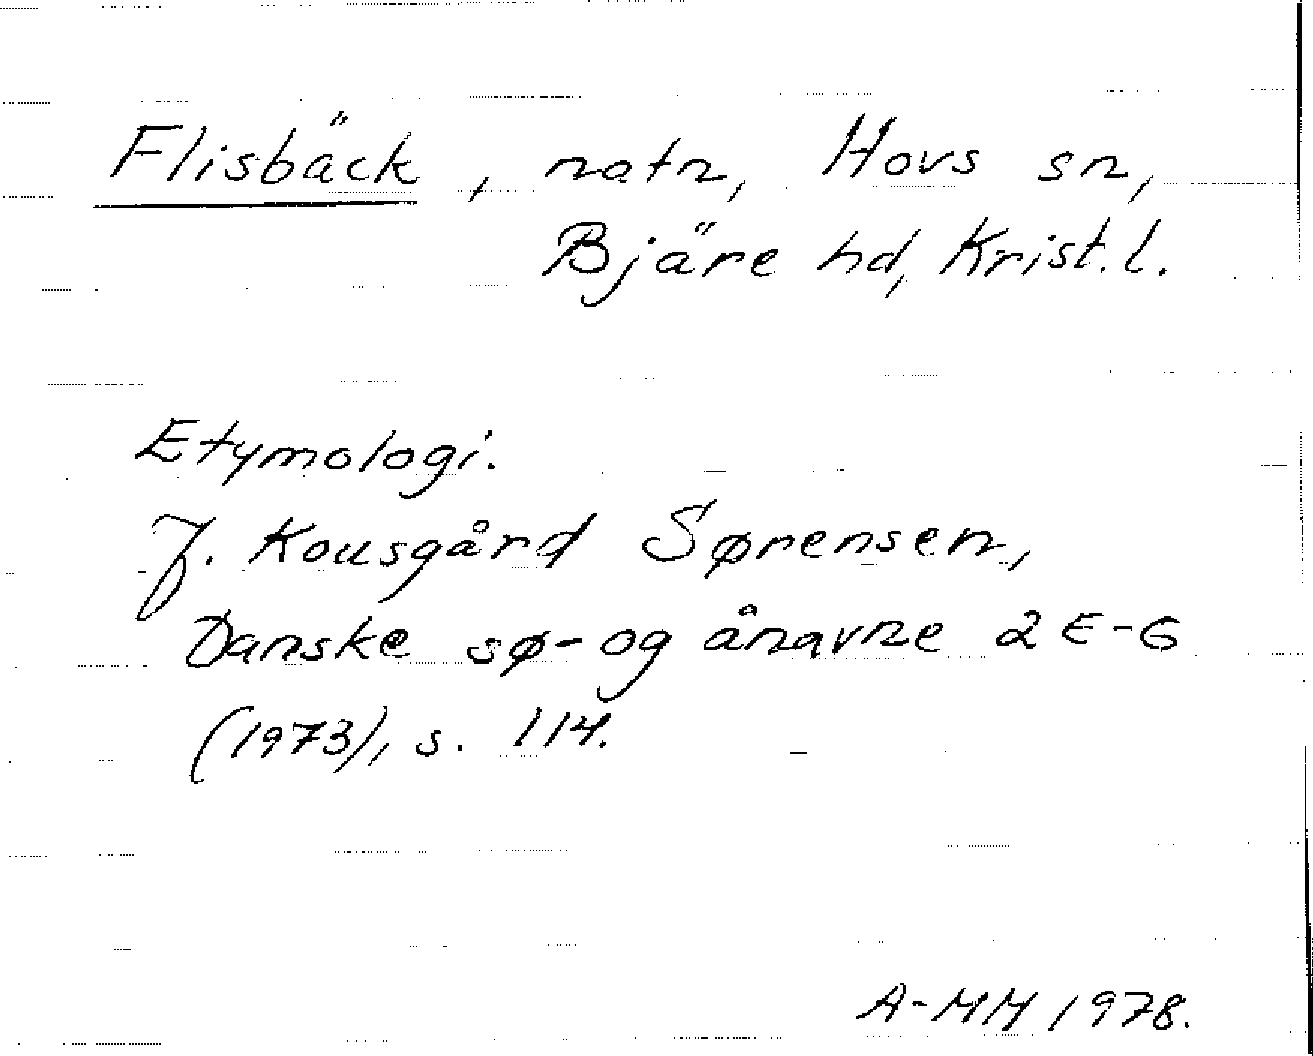 Flisbäck, natn, Hovs sn,
Bjäre hd, Krist. l.
Etymologi.
J. Kousgård Sørensen,
Danske sø- og ånavne 2 E-G
(1973), s. 114.
A-MM 1978.